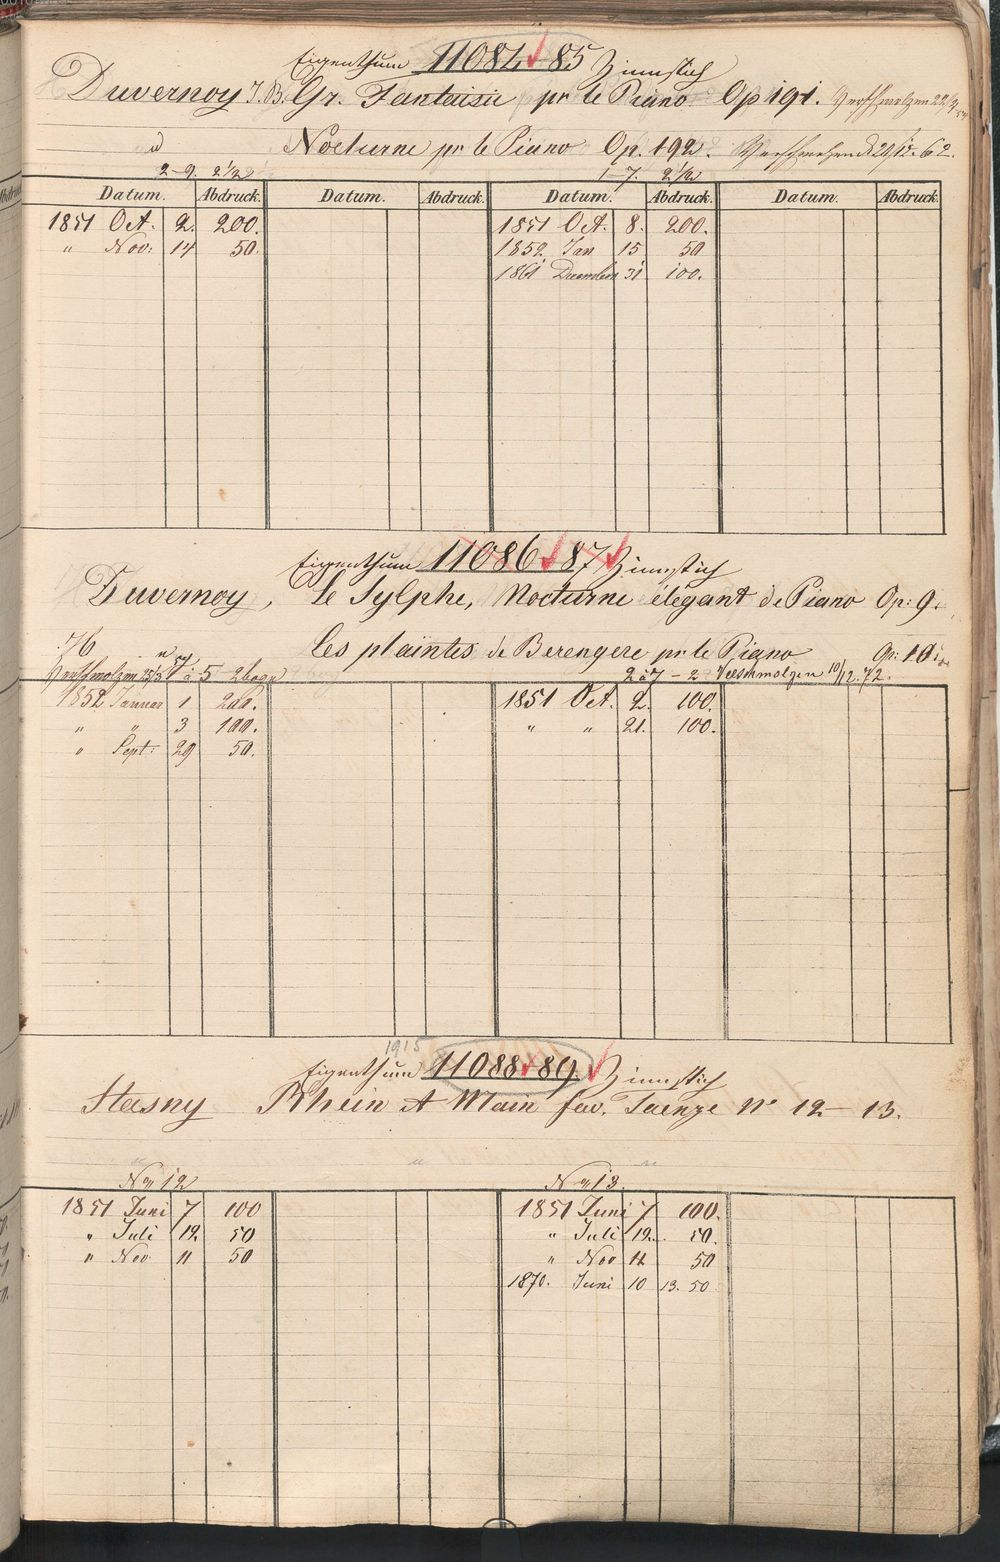 Eigenthum 11084 85 Zinnstich
Duvernoy J.B. Gr. Fantaisie pr le Piano Op 191. Verschmolzen
d Nocturne pr le Piano Op. 192. Verschmolzen d 24/12. 62.
2-9. 2 1/2 1-7. 2 1/2
Datum. Abdruck. Datum. Abdruck. Datum. Abdruck. Datum. Abdruck.
1851 Oct. 2. 200. 1851 Oct. 8. 200.
" Nov: 14 50. 1852. Jan 15 50
1861 December 31 100.
Eigenthum 11086 87 Zinnstich
Duvernoy, Le Sylphe, Nocturne élégant de Piano Op: 9.
Les plaintes de Berengere pr le Piano Op: 10.
Verschmolzen à 5 2 bogn 2 à 7 - 2 Verschmolzen 10/12. 72.
1852 Januar 1 200. 1851 Oct. 2. 100.
" " 3 100. " " 21. 100.
" Sept: 29 50.
1915
Eigenthum 11088 89. Zinnstich
Stasny Rhein et Main fav. Taenze No 12 - 13.
No 12 No 13
1851 Juni 7 100 1851 Juni 7 100.
" Juli 12. 50 " Juli 12. 50.
" Nov 11 50 " Nov 11 50
1870. Juni 10 13. 50